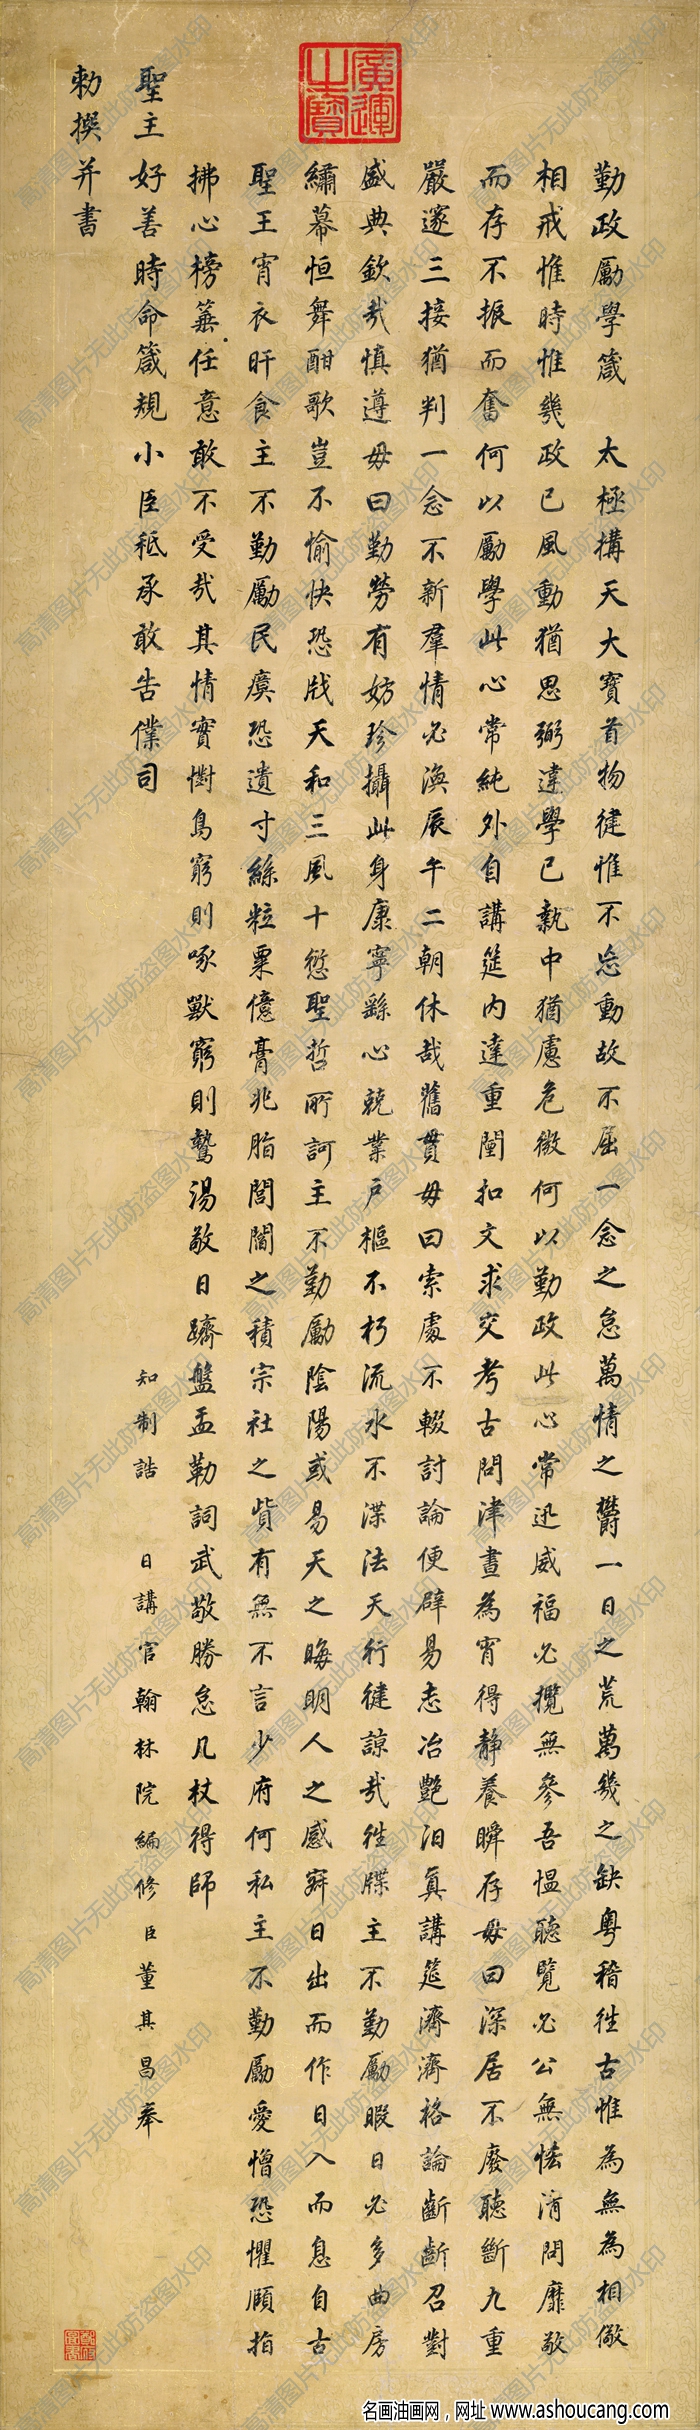 廣運之寶
勤政勵學箴　太極構天大寶首物健惟不息動故不屈一念之怠萬情之欝一日之荒萬幾之缺粵稽往古惟為無為相儆
相戒惟時惟幾政已風動猶思弼違學已執中猶慮危微何以勤政此心常迅威福必攬無參吾愠聽覽必公無恡清問靡敢
而存不振而奮何以勵學此心常純外自講筵內達重闈扣文求交考古問津晝為宵得靜養瞬存毋曰深居不廢聽斷九重
嚴邃三接猶判一念不新羣情必渙辰午二朝休哉舊貫毋曰索處不輟討論便辟易志冶艷汩真講筵濟濟格論齗齗召對
盛典欽哉慎遵毋曰勤勞有妨珍攝此身康寧繇心兢業戶樞不朽流水不渫法天行健諒哉徃牒主不勤勵暇日必多曲房
繡幕恒舞酣歌豈不愉快恐戕天和三風十愆聖哲所訶主不勤勵陰陽或易天之晦明人之感寤日出而作日入而息自古
聖王宵衣旰食主不勤勵民瘼恐遺寸絲粒粟億膏兆脂閭閻之積宗社之貲有無不言少府何私主不勤勵愛憎恐懼頤指
拂心榜箠任意敢不受哉其情實懟鳥窮則啄獸窮則鷙湯敬日躋盤盂勒詞武敬勝怠几杖得師
聖主好善時命箴規小臣秪承敢告僕司　知制誥　日講官翰林院編修臣董其昌奉
勅撰并書
名画油画网，网址 www.ashoucang.com
高清图片无此防盗图水印